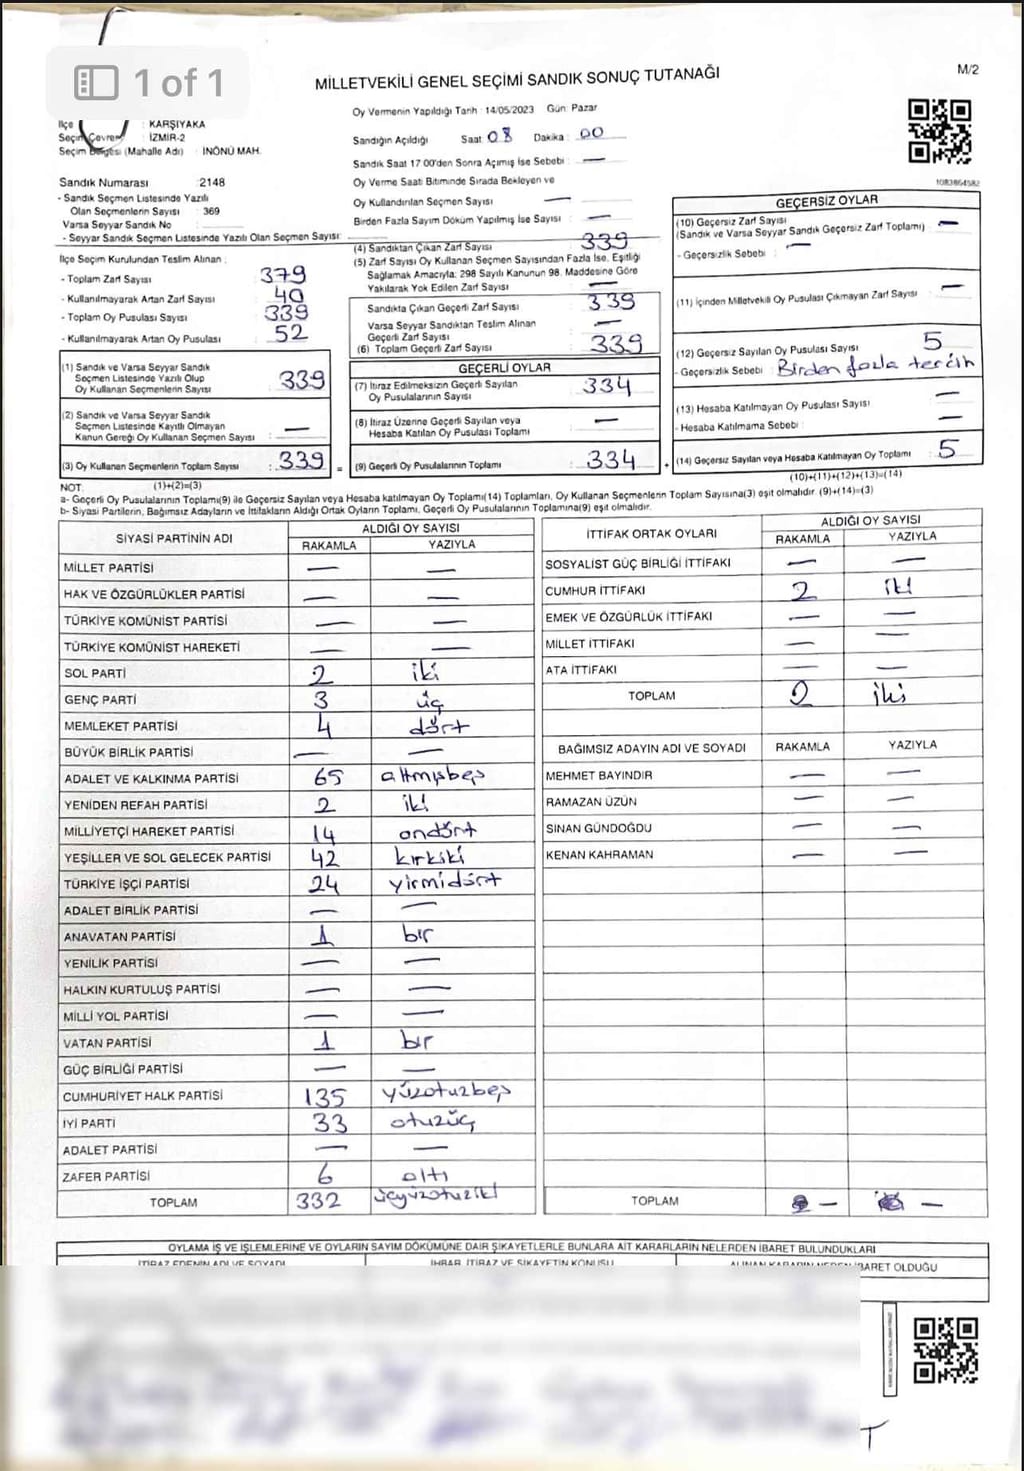 1 of 1
MİLLETVEKİLİ GENEL SEÇİMİ SANDIK SONUÇ TUTANAĞI
M/2
İlçe : KARŞIYAKA
Seçim Çevresi : İZMİR-2
Seçim Bölgesi (Mahalle Adı) : İNÖNÜ MAH.
Oy Vermenin Yapıldığı Tarih : 14/05/2023 Gün: Pazar
Sandığın Açıldığı Saat 08 Dakika : 00
Sandık Saat 17 00'den Sonra Açımış İse Sebebi : —
Oy Verme Saati Bitiminde Sırada Bekleyen ve
Oy Kullandırılan Seçmen Sayısı : —
Birden Fazla Sayım Döküm Yapılmış İse Sayısı : —
1083864582
Sandık Numarası : 2148
- Sandık Seçmen Listesinde Yazılı
Olan Seçmenlerin Sayısı : 369
Varsa Seyyar Sandık No :
- Seyyar Sandık Seçmen Listesinde Yazılı Olan Seçmen Sayısı:
İlçe Seçim Kurulundan Teslim Alınan :
- Toplam Zarf Sayısı : 379
- Kullanılmayarak Artan Zarf Sayısı : 40
- Toplam Oy Pusulası Sayısı : 339
- Kullanılmayarak Artan Oy Pusulası : 52
(1) Sandık ve Varsa Seyyar Sandık
Seçmen Listesinde Yazılı Olup
Oy Kullanan Seçmenlerin Sayısı : 339
(2) Sandık ve Varsa Seyyar Sandık
Seçmen Listesinde Kayıtlı Olmayan
Kanun Gereği Oy Kullanan Seçmen Sayısı : —
(3) Oy Kullanan Seçmenlerin Toplam Sayısı : 339 =
(4) Sandıktan Çıkan Zarf Sayısı : 339
(5) Zarf Sayısı Oy Kullanan Seçmen Sayısından Fazla İse, Eşitliği
Sağlamak Amacıyla: 298 Sayılı Kanunun 98. Maddesine Göre
Yakılarak Yok Edilen Zarf Sayısı : —
Sandıkta Çıkan Geçerli Zarf Sayısı : 339
Varsa Seyyar Sandıktan Teslim Alınan
Geçerli Zarf Sayısı : —
(6) Toplam Geçerli Zarf Sayısı : 339
GEÇERLİ OYLAR
(7) İtiraz Edilmeksizin Geçerli Sayılan
Oy Pusulalarının Sayısı : 334
(8) İtiraz Üzerine Geçerli Sayılan veya
Hesaba Katılan Oy Pusulası Toplamı : —
(9) Geçerli Oy Pusulalarının Toplamı : 334 +
GEÇERSİZ OYLAR
(10) Geçersiz Zarf Sayısı
(Sandık ve Varsa Seyyar Sandık Geçersiz Zarf Toplamı) : —
- Geçersizlik Sebebi : —
(11) İçinden Milletvekili Oy Pusulası Çıkmayan Zarf Sayısı : —
(12) Geçersiz Sayılan Oy Pusulası Sayısı : 5
- Geçersizlik Sebebi : Birden fazla tercih
(13) Hesaba Katılmayan Oy Pusulası Sayısı : —
- Hesaba Katılmama Sebebi : —
(14) Geçersiz Sayılan veya Hesaba Katılmayan Oy Toplamı : 5
NOT: (1)+(2)=(3)
(10)+(11)+(12)+(13)=(14)
a- Geçerli Oy Pusulalarının Toplamı(9) ile Geçersiz Sayılan veya Hesaba katılmayan Oy Toplamı(14) Toplamları, Oy Kullanan Seçmenlerin Toplam Sayısına(3) eşit olmalıdır. (9)+(14)=(3)
b- Siyasi Partilerin, Bağımsız Adayların ve İttifakların Aldığı Ortak Oyların Toplamı, Geçerli Oy Pusulalarının Toplamına(9) eşit olmalıdır.
SİYASİ PARTİNİN ADI ALDIĞI OY SAYISI
RAKAMLA YAZIYLA
MİLLET PARTİSİ — —
HAK VE ÖZGÜRLÜKLER PARTİSİ — —
TÜRKİYE KOMÜNİST PARTİSİ — —
TÜRKİYE KOMÜNİST HAREKETİ — —
SOL PARTİ 2 iki
GENÇ PARTİ 3 üç
MEMLEKET PARTİSİ 4 dört
BÜYÜK BİRLİK PARTİSİ — —
ADALET VE KALKINMA PARTİSİ 65 altmışbeş
YENİDEN REFAH PARTİSİ 2 iki
MİLLİYETÇİ HAREKET PARTİSİ 14 ondört
YEŞİLLER VE SOL GELECEK PARTİSİ 42 kırkiki
TÜRKİYE İŞÇİ PARTİSİ 24 yirmidört
ADALET BİRLİK PARTİSİ — —
ANAVATAN PARTİSİ 1 bir
YENİLİK PARTİSİ — —
HALKIN KURTULUŞ PARTİSİ — —
MİLLİ YOL PARTİSİ — —
VATAN PARTİSİ 1 bir
GÜÇ BİRLİĞİ PARTİSİ — —
CUMHURİYET HALK PARTİSİ 135 yüzotuzbeş
İYİ PARTİ 33 otuzüç
ADALET PARTİSİ — —
ZAFER PARTİSİ 6 altı
TOPLAM 332 üçyüzotuziki
İTTİFAK ORTAK OYLARI ALDIĞI OY SAYISI
RAKAMLA YAZIYLA
SOSYALİST GÜÇ BİRLİĞİ İTTİFAKI — —
CUMHUR İTTİFAKI 2 iki
EMEK VE ÖZGÜRLÜK İTTİFAKI — —
MİLLET İTTİFAKI — —
ATA İTTİFAKI — —
TOPLAM 2 iki
BAĞIMSIZ ADAYIN ADI VE SOYADI RAKAMLA YAZIYLA
MEHMET BAYINDIR — —
RAMAZAN ÜZÜN — —
SİNAN GÜNDOĞDU — —
KENAN KAHRAMAN — —
TOPLAM — —
OYLAMA İŞ VE İŞLEMLERİNE VE OYLARIN SAYIM DÖKÜMÜNE DAİR ŞİKAYETLERLE BUNLARA AİT KARARLARIN NELERDEN İBARET BULUNDUKLARI
İTİRAZ EDENİN ADI VE SOYADI İHBAR, İTİRAZ VE ŞİKAYETİN KONUSU ALINAN KARARIN NEDEN İBARET OLDUĞU